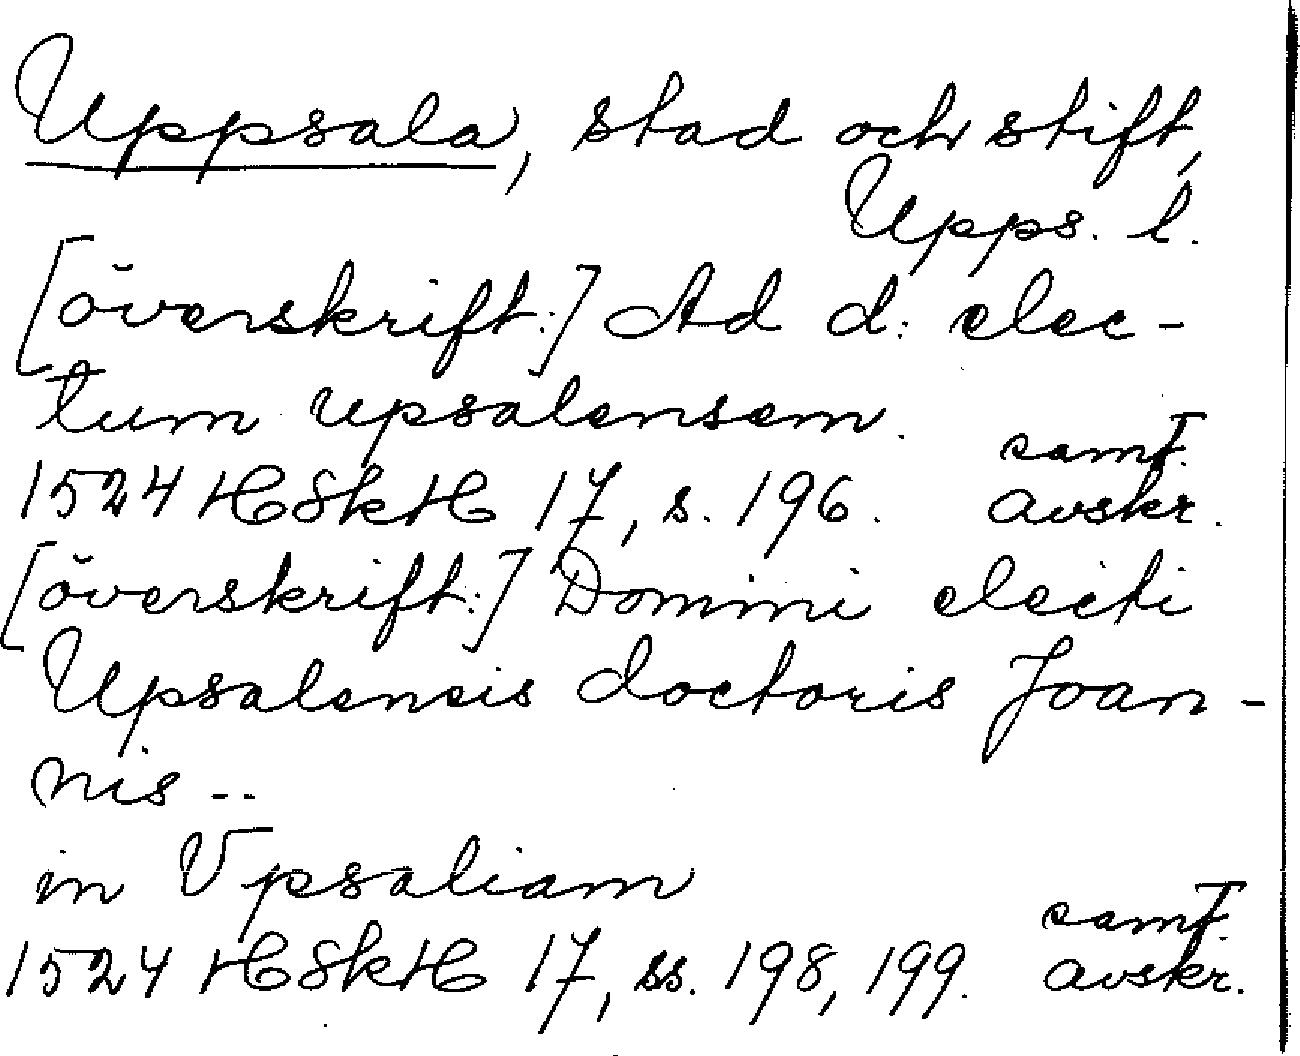 Uppsala, stad och stift,
Upps. l.
[överskrift:] Ad d: elec-
tum upsalensem.
samt.
1524 HSkH 17, s. 196. avskr.
[överskrift:] Domini electi
Upsalensis doctoris Joan-
nis --
in Vpsaliam
samt.
1524 HSkH 17, ss. 198, 199. avskr.